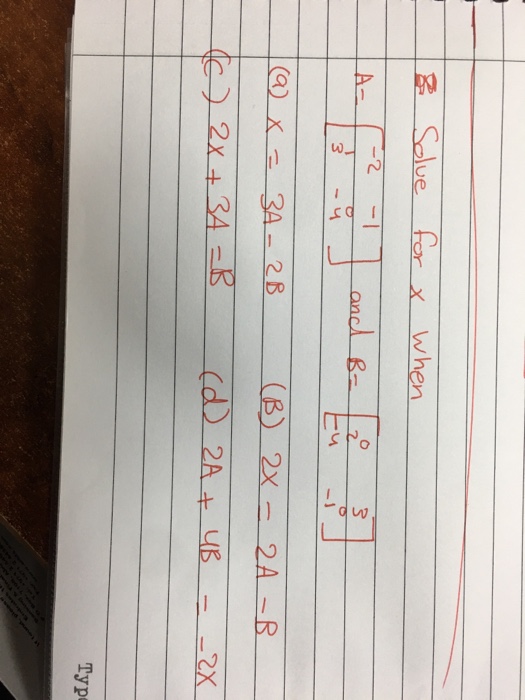 B Solve for x when
A= [ -2 -1
1 0
3 -4 ] and B= [ 0 3
2 0
-4 -1 ]
(a) X = 3A - 2B (B) 2X = 2A - B
(C) 2X + 3A = B (d) 2A + 4B = -2X
Typ